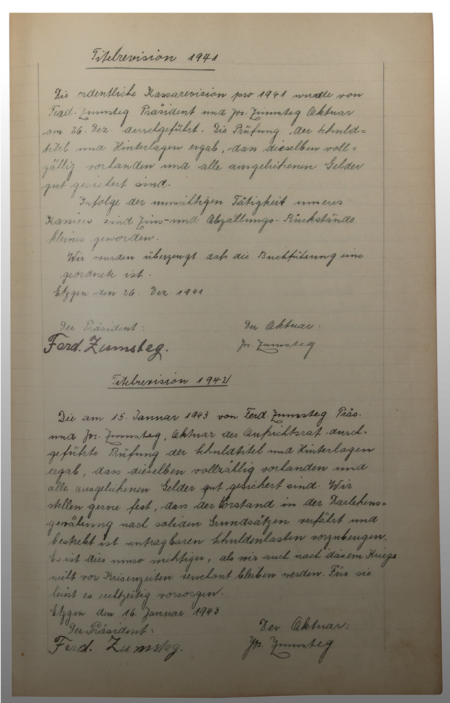 Titelrevision 1941
Die ordentliche Kassarevision pro 1941 wurde von
Ferd. Zumsteg Präsident und Jos. Zumsteg Aktuar
am 26. Dez. durchgeführt. Die Prüfung der Schuld-
titel und Hinterlagen ergab, dass dieselben voll-
zählig vorhanden und alle ausgeliehenen Gelder
gut gesichert sind.
Infolge der umsichtigen Tätigkeit unseres
Kassiers sind Zins- und Abzahlungs-Rückstände
kleiner geworden.
Wir wurden überzeugt dass die Buchführung eine
geordnete ist.
Etzgen den 26. Dez 1941
Der Präsident: Der Aktuar:
Ferd. Zumsteg. Jos. Zumsteg
Titelrevision 1942
Die am 15. Januar 1943 von Ferd Zumsteg Präs.
und Jos. Zumsteg, Aktuar der Aufsichtsrat durch-
geführte Prüfung der Schuldtitel und Hinterlagen
ergab, dass dieselben vollzählig vorhanden und
alle ausgeliehenen Gelder gut gesichert sind. Wir
stellen gerne fest, dass der Vorstand in der Darlehens-
gewährung nach soliden Grundsätzen verfährt und
bestrebt ist untragbaren Schuldenlasten vorzubeugen.
Es ist dies umso wichtiger, als wir auch nach diesem Kriege
nicht vor Krisenzeiten verschont bleiben werden. Für sie
heisst es rechtzeitig vorsorgen.
Etzgen den 16. Januar 1943
Der Präsident: Der Aktuar:
Ferd. Zumsteg. Jos. Zumsteg